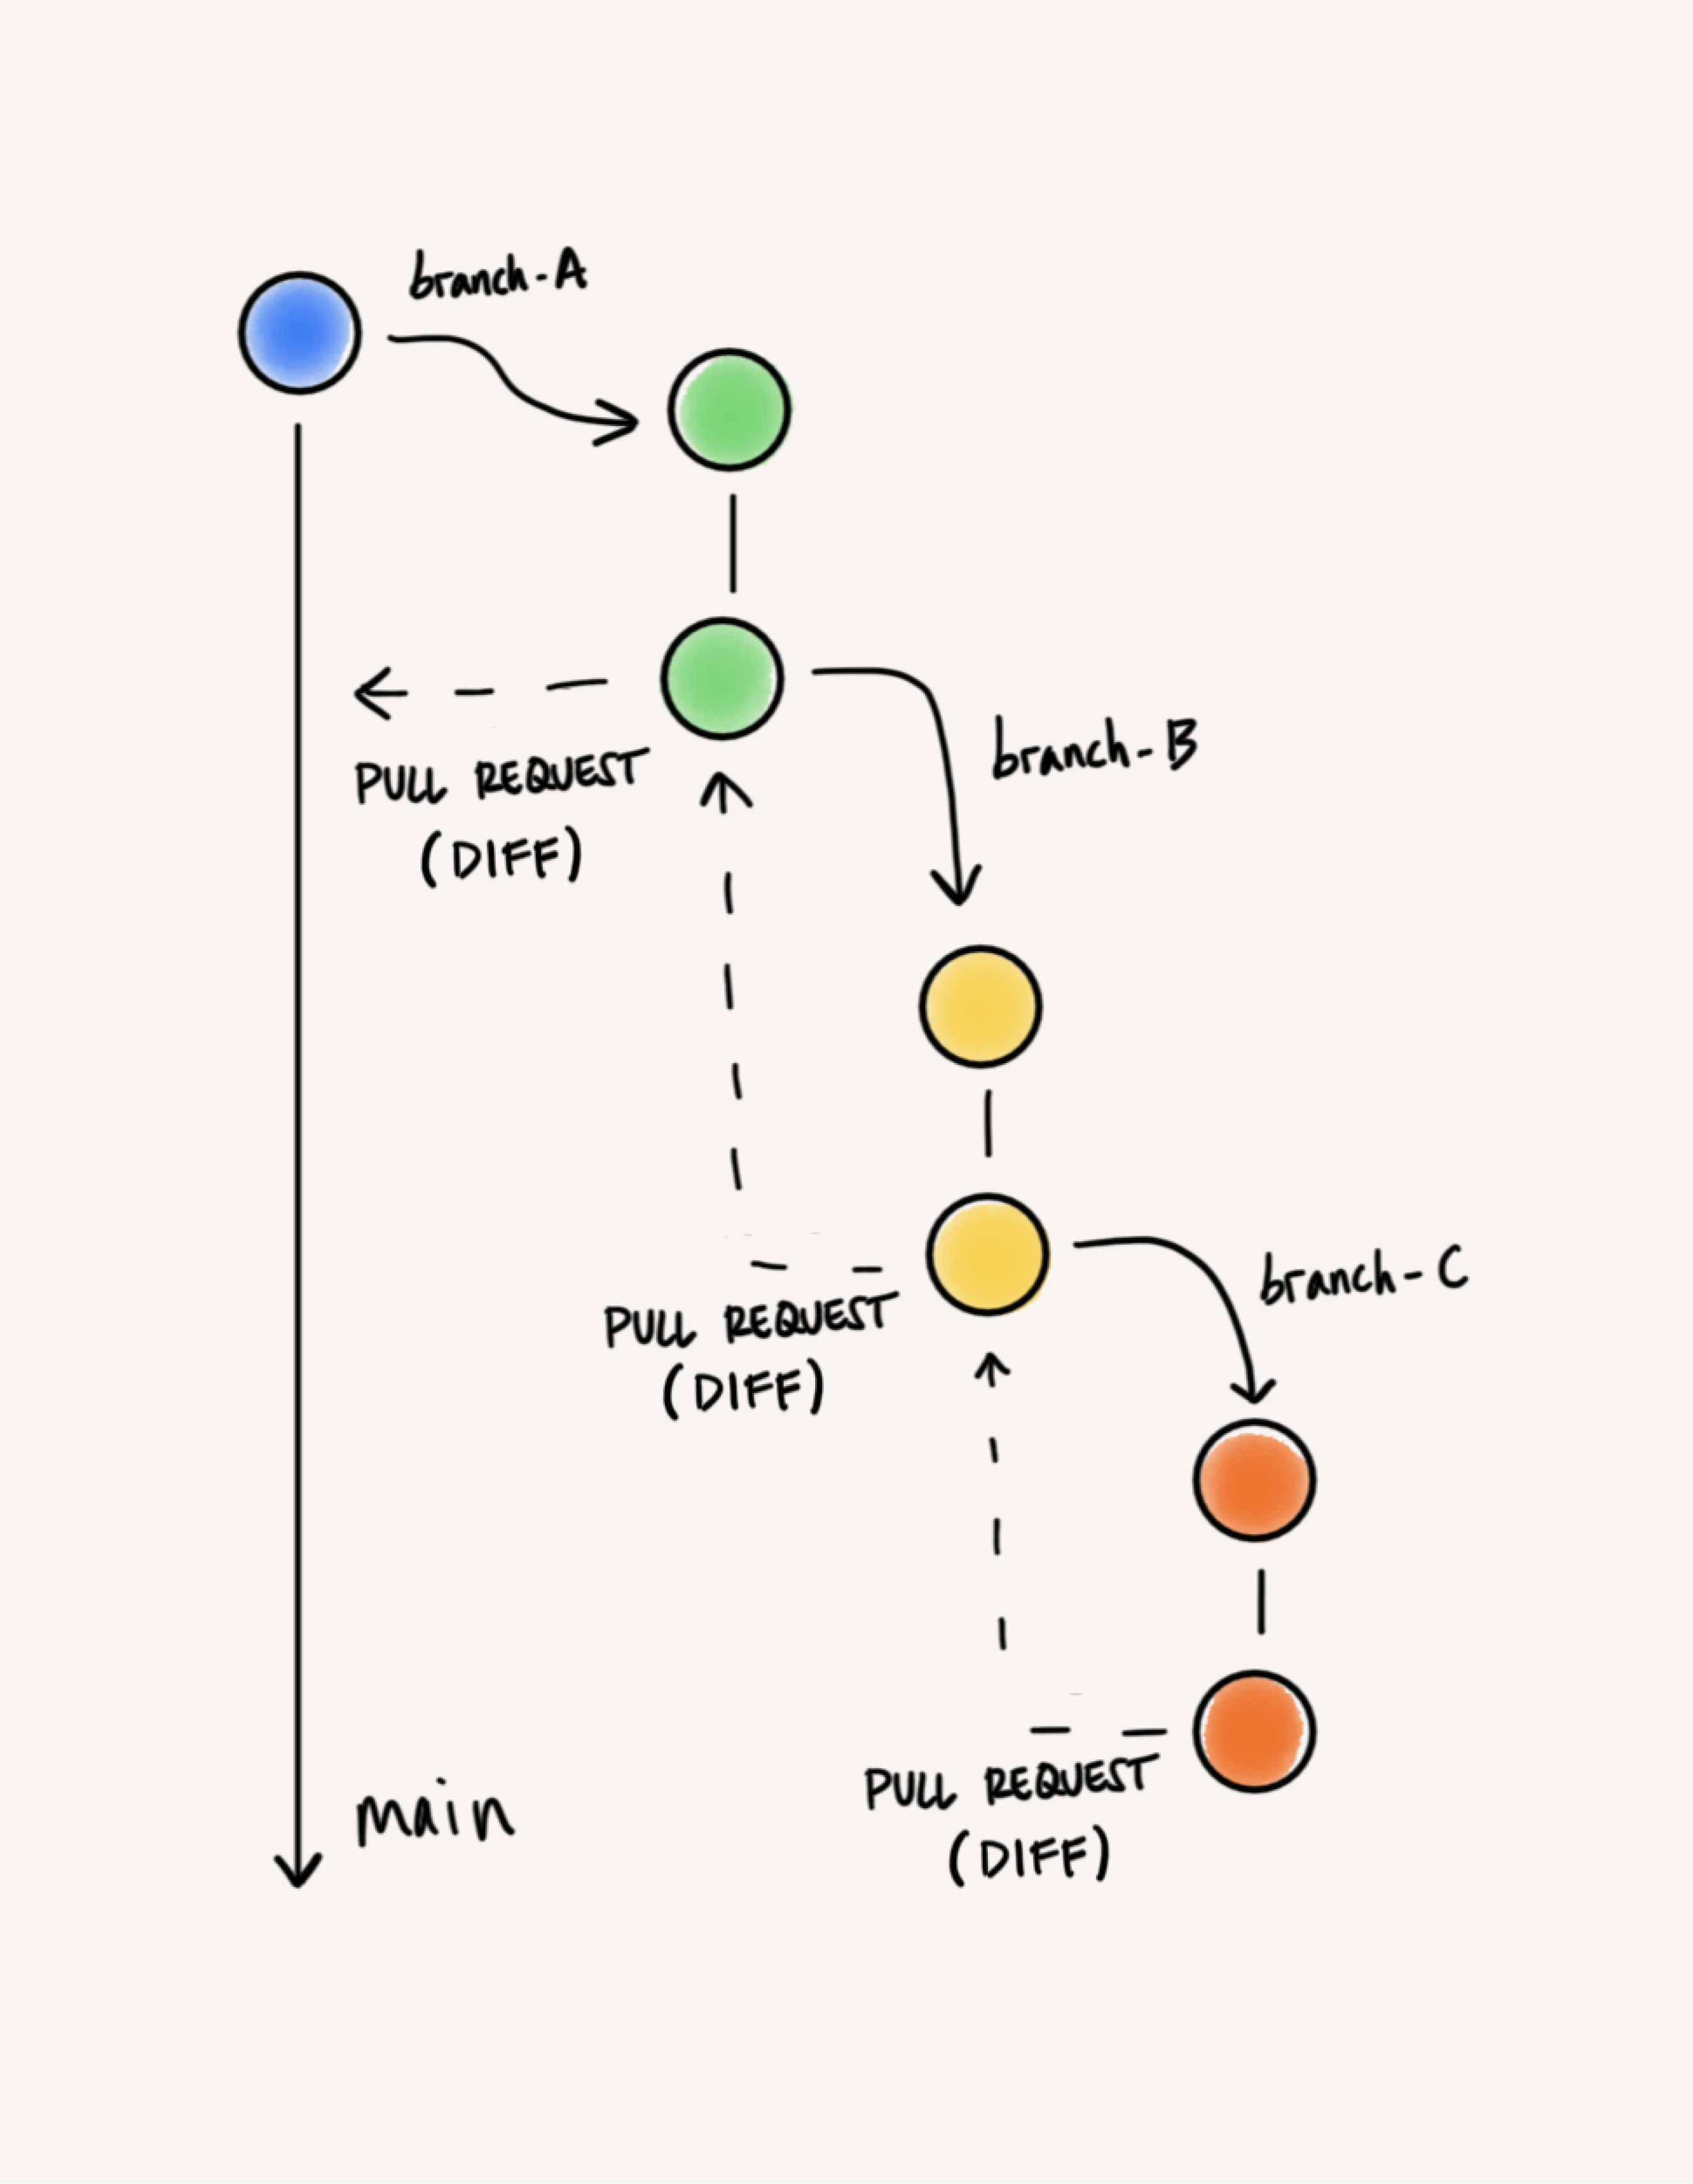 branch-A
PULL REQUEST
(DIFF)
branch-B
PULL REQUEST
(DIFF)
branch-C
main
PULL REQUEST
(DIFF)